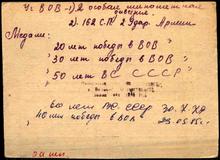 Ч. ВОВ - 1) 2 особая минометная
дивизия
2) 162 С.П. 2 Удар. Армии
Медали:
20 лет победы в ВОВ
"30 лет победы в ВОВ"
"50 лет ВС СССР"
60 лет ВС СССР 30.X.79
40 лет победы в ВОВ 23.05.85г.